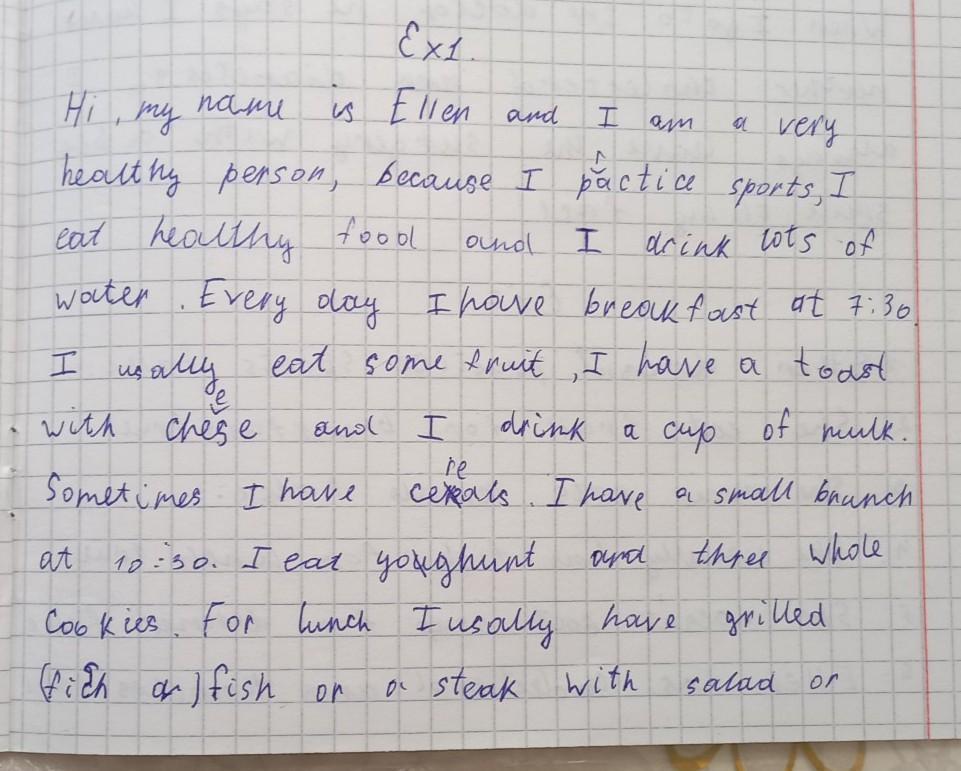 Ex1.
Hi, my name is Ellen and I am a very
healthy person, because I practice sports, I
eat healthy food and I drink lots of
water. Every day I have breakfast at 7:30.
I usally eat some fruit, I have a toast
with cheese and I drink a cup of milk.
Sometimes I have cereals. I have a small brunch
at 10:30. I eat youghurt and three whole
Cookies. For lunch I usally have grilled
(fich or) fish or a steak with salad or